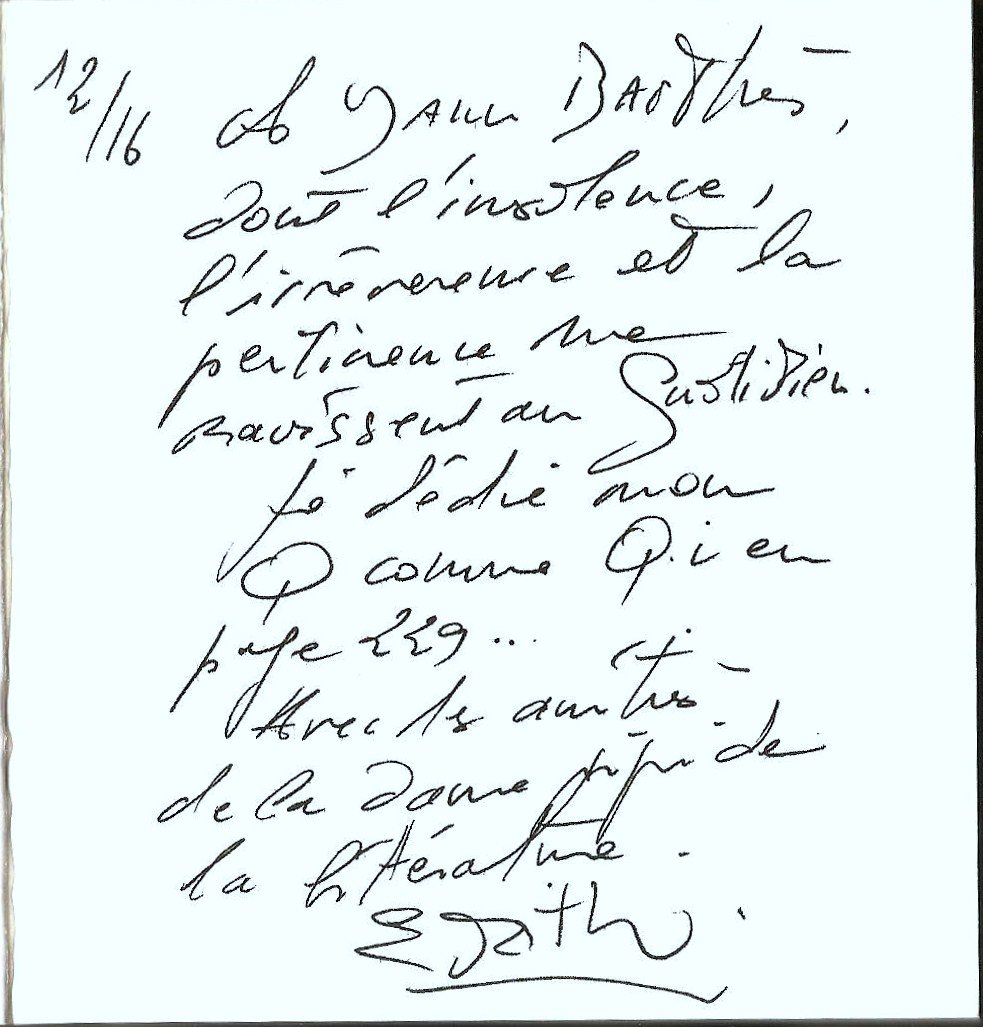 12/16 A Yann Barthès,
dont l'insolence,
l'irrévérence et la
pertinence me
ravissent au Quotidien.
Je dédie mon
Q comme Q.i en
page 229...
Avec les amitiés
de la dame pipi de
la littérature.
Edith